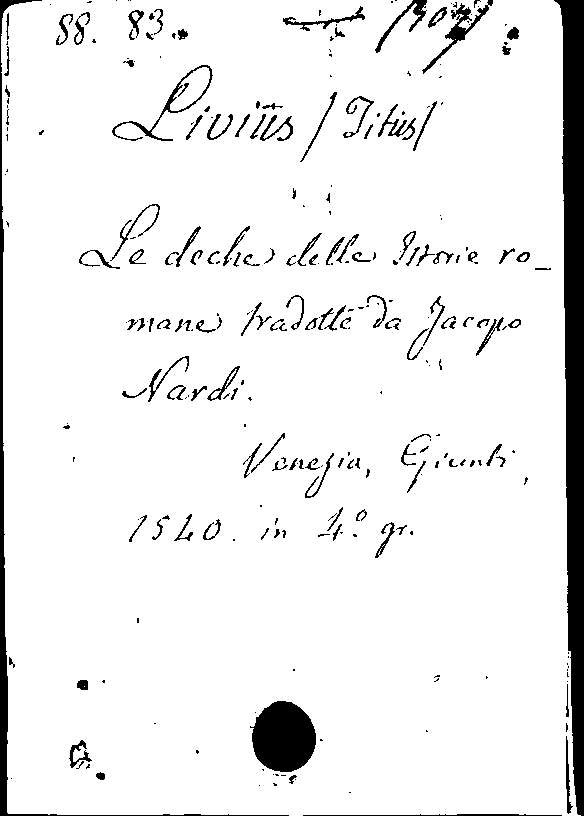 88. 83.
Livius / Titus /
Le deche delle Istorie ro-
mane tradotte da Jacopo
Nardi.
Venezia, Giunti,
1540. in 4.º gr.